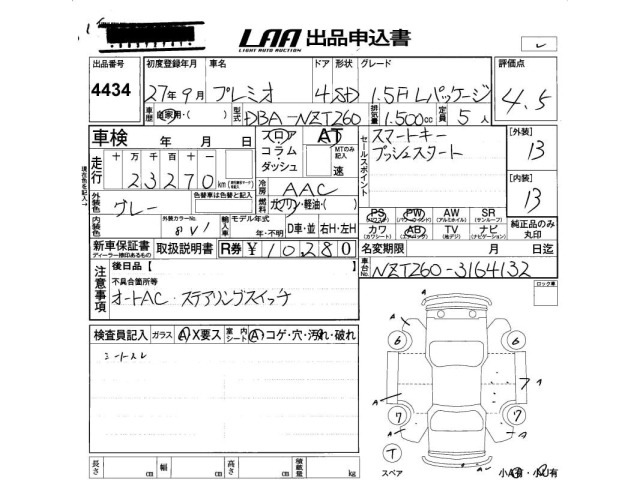 LAA 出品申込書
LIGHT AUTO AUCTION
出品番号 初度登録年月 車名 ドア 形状 グレード 評価点
4434 27年9月 プレミオ 4 SD 1.5F Lパッケージ 4.5
車歴 自家用・( ) 型式 DBA-NZT260 排気量 1.500cc 定員 5人
車検 年 月 日 フロア コラム ダッシュ AT MTのみ記入 速
セールスポイント スマートキー
プッシュスタート
[外装] 13
[内装] 13
走行 十 万 千 百 十
2 3 2 7 0 km
冷房 AAC
外装色 グレー 色替車は色替と記入
燃料 ガソリン・軽油・( )
内装色 外装カラーNo. 8V1 輸入車 モデル年式 年・不明 D車・並 右H・左H
PS PW AW SR
(パワステ) (パワーウィンド) (アルミホイル) (サンルーフ)
カワ AB TV ナビ
(カワシート) (エアバッグ) (地デジ) (ナビゲーション)
純正品のみ丸印
新車保証書 取扱説明書 R券 ¥10,280
ディーラー捺印あるもの
名変期限 月 日迄
車台No. NZT260-3164132
注意事項 後日品【 】
不具合箇所等
オートAC・ステアリングスイッチ
ロック車
検査員記入 ガラス A X要ス 室内 シート A コゲ・穴・汚れ・破れ
シートスレ
A
6 6
A 7 A
7 7
A A
T
スペア
A
小A有・小U有
長さ cm 幅 cm 高さ cm 積載量 kg